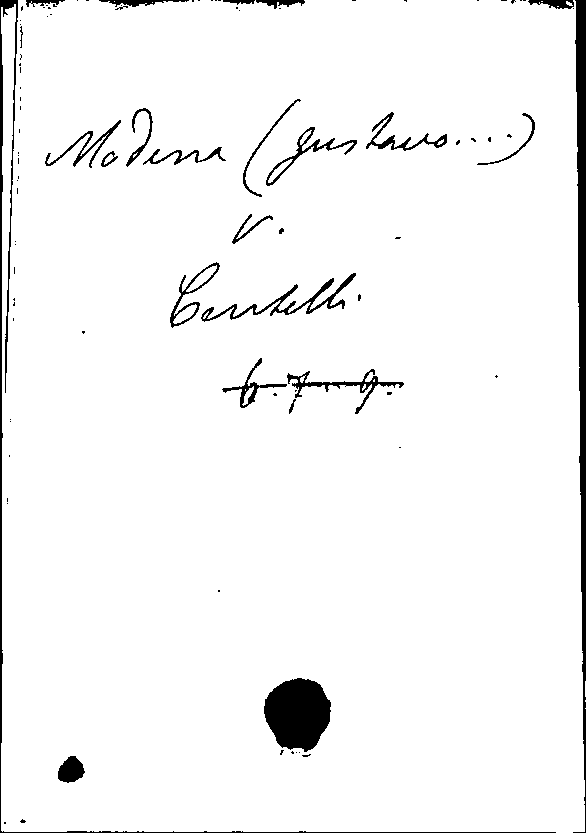 Modena (Gustavo....)
v.
Cantelli.
6.7.9.